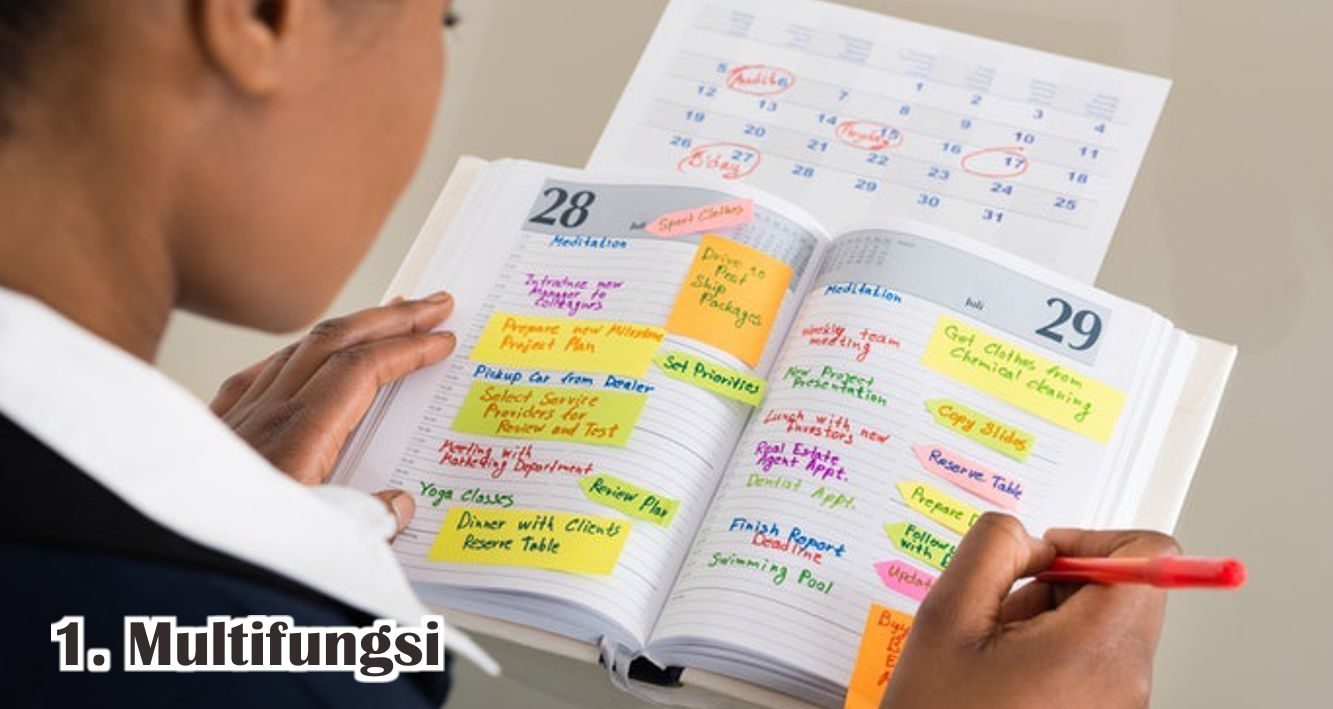 5 Audit 6 7 1 2 3 4
12 13 14 8 9 10 11
19 20 21 15 16 17 18
26 B'day 27 28 22 23 24 25
29 30 31
28
Sport Clothes
Meditation
Drive to
Post
Ship
Packages
Introduce new
Manager to
Colleagues
Prepare new Milestone
Project Plan
Set Priorities
Pickup Car from Dealer
Select Service
Providers for
Review and Test
Meeting with
Marketing Department
Yoga Classes
Review Plan
Dinner with Clients
Reserve Table
Juli
29
Meditation
Weekly team
meeting
Get Clothes from
Chemical cleaning
New Project
Presentation
Copy Slides
Lunch with new
Investors
Real Estate
Agent Appt.
Reserve Table
Dentist Appt.
Prepare
Follow
with
Finish Report
Deadline
Update
Swimming Pool
1. Multifungsi